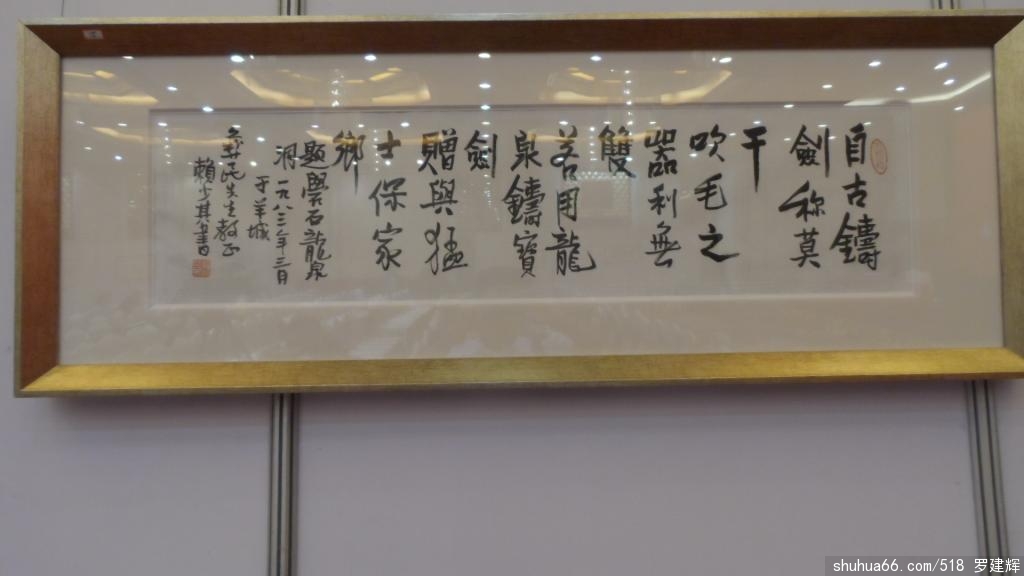 自古鑄
劍称莫
干
吹毛之
器利無
雙
若用龍
泉鑄寶
劍
贈與猛
士保家
鄉
題學石龍泉
洞一九八三年三月
于羊城
先生教正
賴少其書
shuhua66.com/518 罗建辉